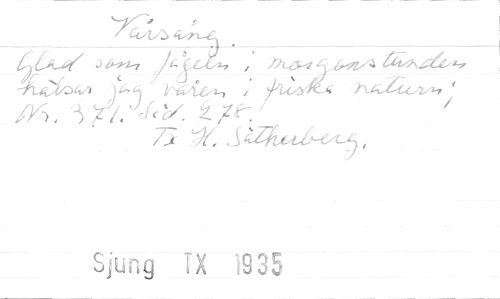 Vårsång.
Glad som fågeln i morgonstunden
hälsar jag våren i friska naturn;
Nr. 371. Sid. 278.
Tx H. Sätherberg.
Sjung TX 1935